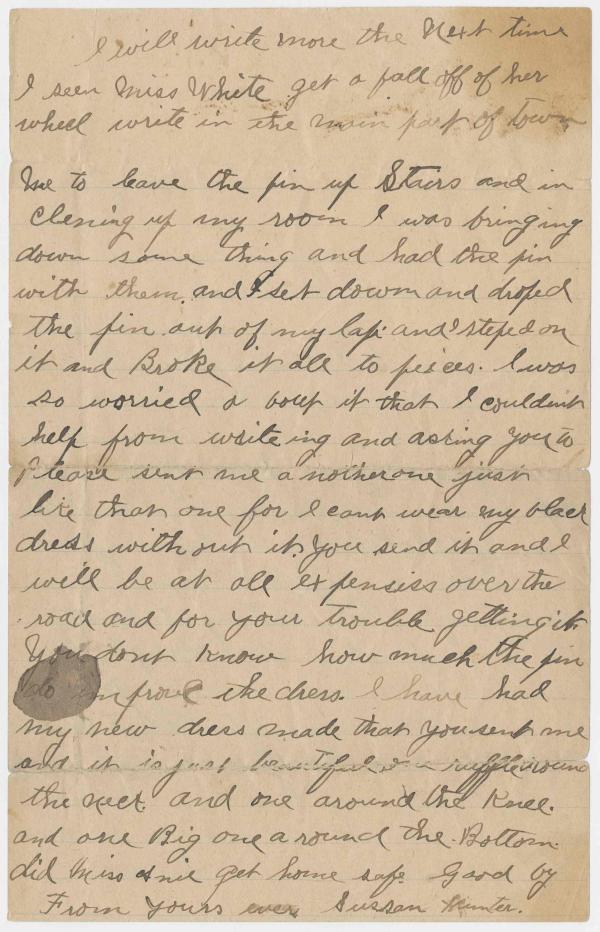 I will write more the Next time
I seen Miss White get a fall off of her
wheel write in the main part of town
me to leave the pin up Stairs and in
clening up my room I was bringing
down some thing and had the pin
with them and I set down and droped
the pin out of my lap and I steped on
it and Broke it all to peices. I was
so worried a bout it that I couldint
help from writeing and asking you to
Please sent me a nother one just
like that one for I cant wear my black
dress with out it. You send it and I
will be at all expensiss over the
road and for your trouble getting it.
You dont know how much the pin
do improve the dress. I have had
my new dress made that you sent me
and it is just beautiful a ruffle round
the neck. and one around the knee.
and one Big one a round the Bottom.
did Miss get home safe. Good by
From yours ever Sussan Hunter.